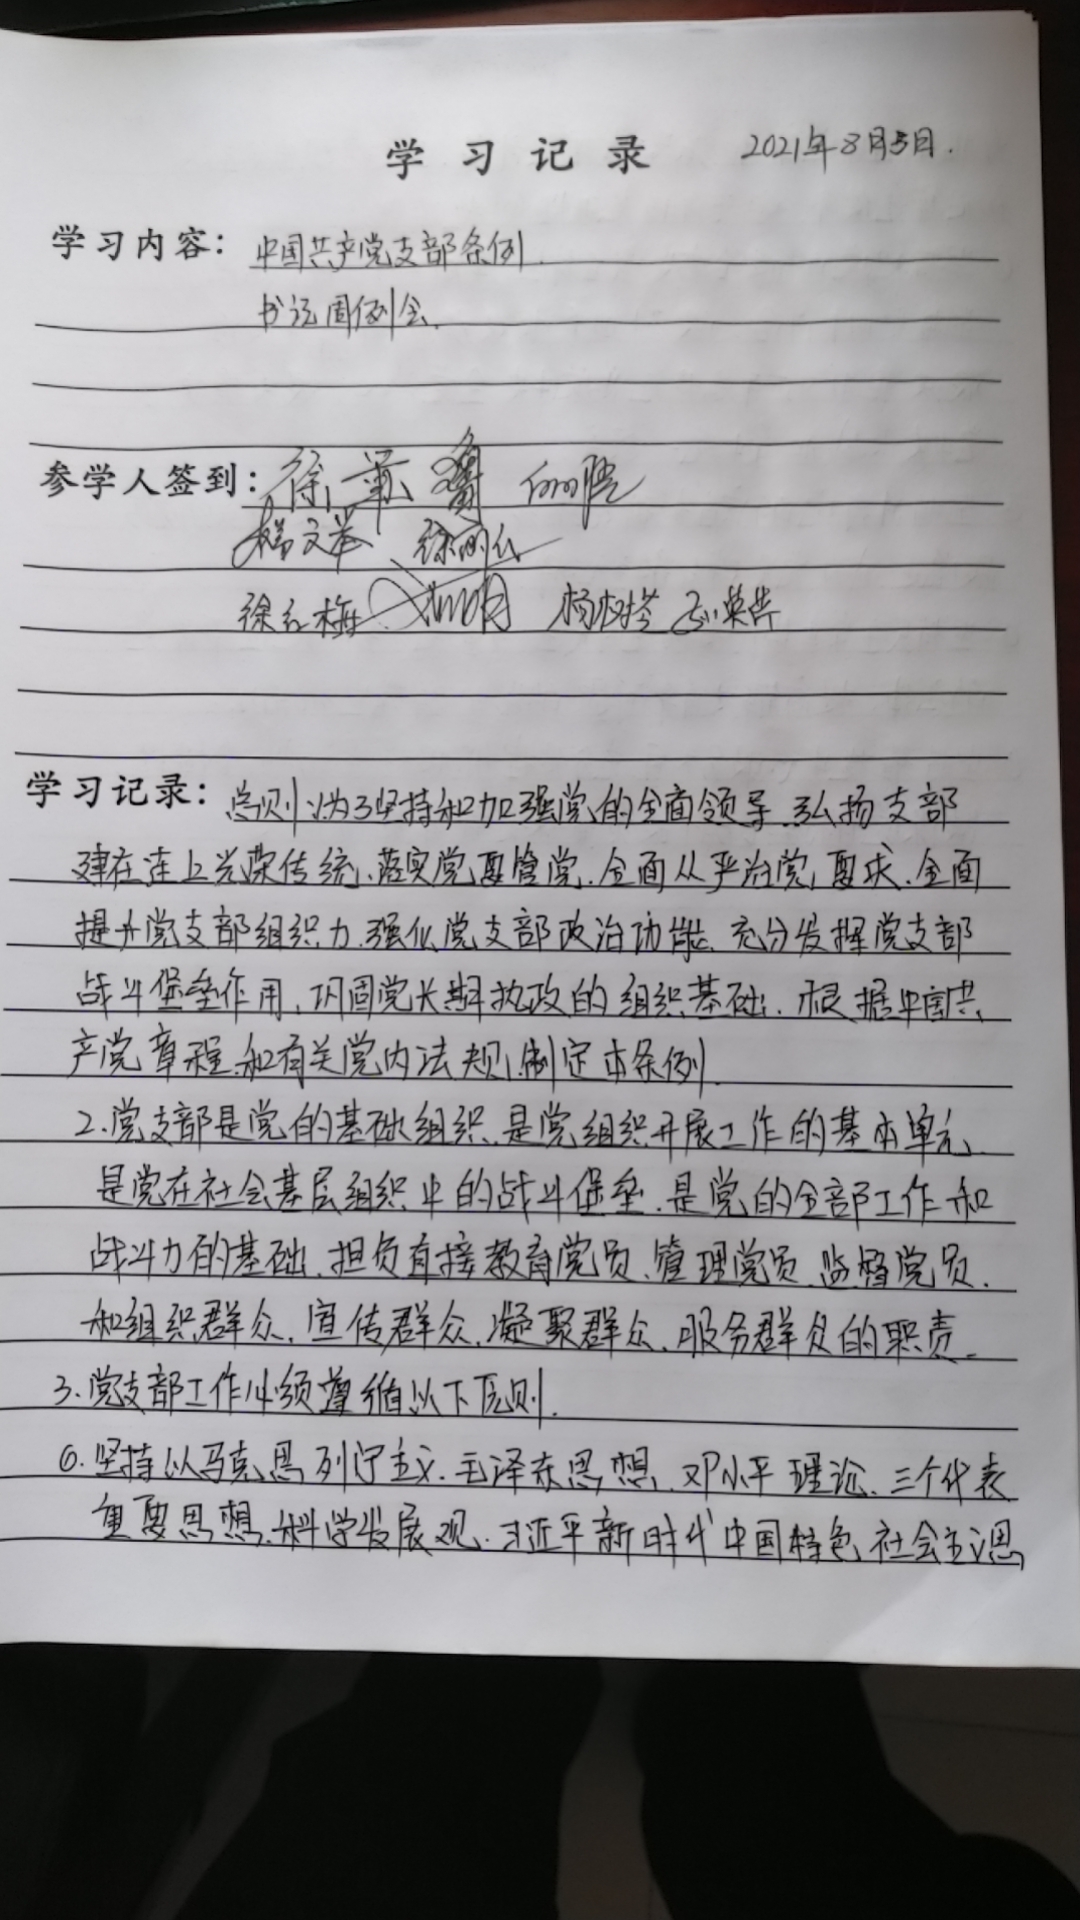 学习记录 2021年8月5日.
学习内容：中国共产党支部条例.
书记周例会.
参学人签到：徐
杨文举 徐
徐红梅 杨树芬 孙英芹
学习记录：总则1.为了坚持和加强党的全面领导、弘扬支部
建在连上光荣传统、落实党要管党、全面从严治党要求、全面
提升党支部组织力、强化党支部政治功能、充分发挥党支部
战斗堡垒作用、巩固党长期执政的组织基础、根据中国共
产党章程和有关党内法规、制定本条例.
2.党支部是党的基础组织、是党组织开展工作的基本单元、
是党在社会基层组织中的战斗堡垒、是党的全部工作和
战斗力的基础、担负直接教育党员、管理党员、监督党员、
和组织群众、宣传群众、凝聚群众、服务群众的职责。
3.党支部工作必须遵循以下原则.
①.坚持以马克思列宁主义、毛泽东思想、邓小平理论、三个代表
重要思想、科学发展观、习近平新时代中国特色社会主义思